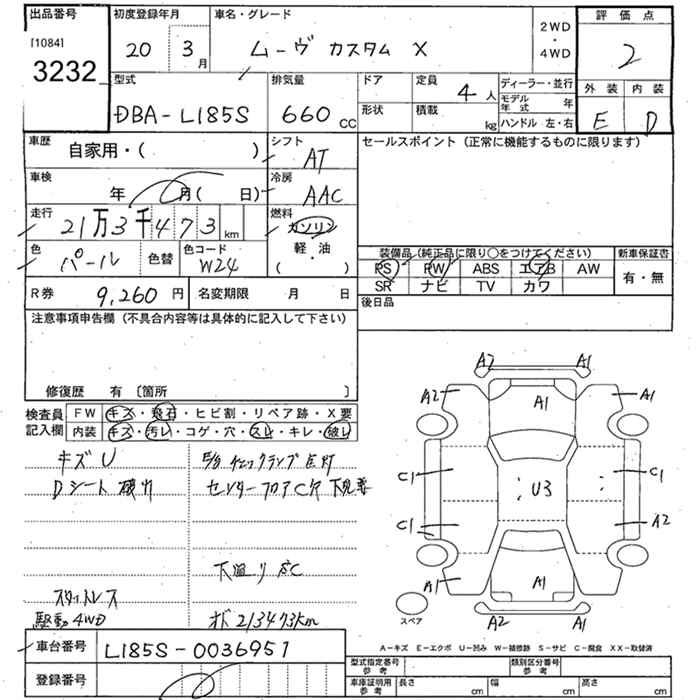 出品番号
[1084]
3232
初度登録年月
20 3 月
車名・グレード
ムーヴ カスタム X
2WD
・
4WD
評価点
2
外装 内装
E D
型式
DBA-L185S
排気量
660 CC
ドア
定員
4 人
形状
積載
kg
ディーラー・並行
モデル年式 年
ハンドル 左・右
車歴
自家用・( )
シフト
AT
セールスポイント (正常に機能するものに限ります)
車検
年 月( 日)
冷房
AAC
走行
21万3千473 km
燃料
ガソリン
・
軽・油
( )
色
パール
色替
色コード
W24
装備品(純正品に限り○をつけてください)
PS PW ABS エアB AW
SR ナビ TV カワ
新車保証書
有・無
R券 9,260 円
名変期限 月 日
後日品
注意事項申告欄 (不具合内容等は具体的に記入して下さい)
修復歴 有 〔箇所 〕
検査員
記入欄
FW キズ・飛石・ヒビ割・リペア跡・X要
内装 キズ・汚レ・コゲ・穴・スレ・キレ・破レ
キズU
Dシート破れ
E/g チェックランプ点灯
センターフロアC穴
下廻りC
スタットレス
駆動4WD
オド213473km
車台番号 L185S-0036951
登録番号
A2 A1
A2 A1 A1
C1 U3 C1
C1 A2
A1 A1
A2 A1
スペア
A-キズ E-エクボ U-凹み W-補修跡 S-サビ C-腐食 XX-取替済
型式指定番号
参考
類別区分番号
参考
車庫証明用
参考
長さ cm
幅 cm
高さ cm